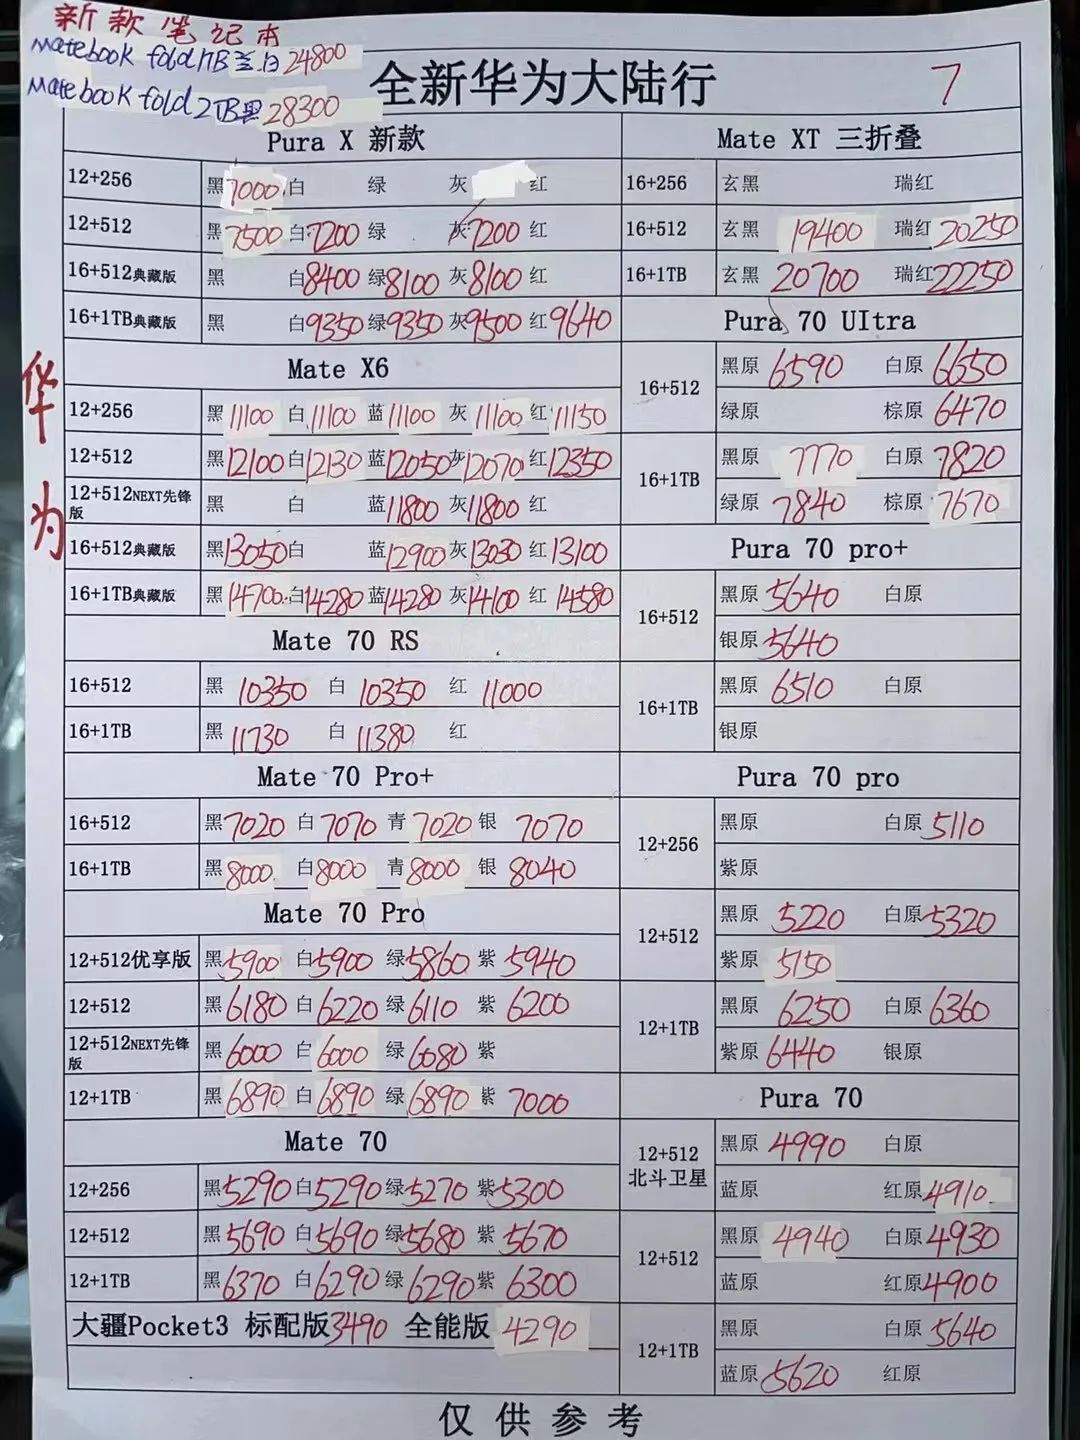 新款笔记本
Matebook fold 1TB 兰.白 24800
Matebook fold 2TB黑 28300
全新华为大陆行
7
华为
Pura X 新款
12+256 黑7000 白 绿 灰 红
12+512 黑7500 白7200 绿 灰7200 红
16+512典藏版 黑 白8400 绿8100 灰8100 红
16+1TB典藏版 黑 白9350 绿9350 灰9500 红9640
Mate X6
12+256 黑11100 白11100 蓝11100 灰11100 红11150
12+512 黑12100 白12130 蓝12050 灰12070 红12350
12+512NEXT先锋版 黑 白 蓝11800 灰11800 红
16+512典藏版 黑13050 白 蓝12900 灰13030 红13100
16+1TB典藏版 黑14700 白14280 蓝14280 灰14100 红14580
Mate 70 RS
16+512 黑 10350 白 10350 红 11000
16+1TB 黑 11730 白 11380 红
Mate 70 Pro+
16+512 黑7020 白7070 青7020 银 7070
16+1TB 黑8000 白8000 青8000 银 8040
Mate 70 Pro
12+512优享版 黑5900 白5900 绿5860 紫5940
12+512 黑6180 白6220 绿6110 紫6200
12+512NEXT先锋版 黑6000 白6000 绿6080 紫
12+1TB 黑6890 白6890 绿6890 紫7000
Mate 70
12+256 黑5290 白5290 绿5270 紫5300
12+512 黑5690 白5690 绿5680 紫5670
12+1TB 黑6370 白6290 绿6290 紫6300
大疆Pocket3 标配版3490 全能版 4290
Mate XT 三折叠
16+256 玄黑 瑞红
16+512 玄黑 19400 瑞红20250
16+1TB 玄黑 20700 瑞红22250
Pura 70 UItra
16+512 黑原 6590 白原 6650
绿原 棕原 6470
16+1TB 黑原 7770 白原 7820
绿原 7840 棕原 7670
Pura 70 pro+
16+512 黑原5640 白原
银原5640
16+1TB 黑原 6510 白原
银原
Pura 70 pro
12+256 黑原 白原5110
紫原
12+512 黑原 5220 白原5320
紫原 5150
12+1TB 黑原 6250 白原6360
紫原6440 银原
Pura 70
12+512 北斗卫星 黑原4990 白原
蓝原 红原4910
12+512 黑原 4940 白原4930
蓝原 红原4900
12+1TB 黑原 白原5640
蓝原5620 红原
仅供参考